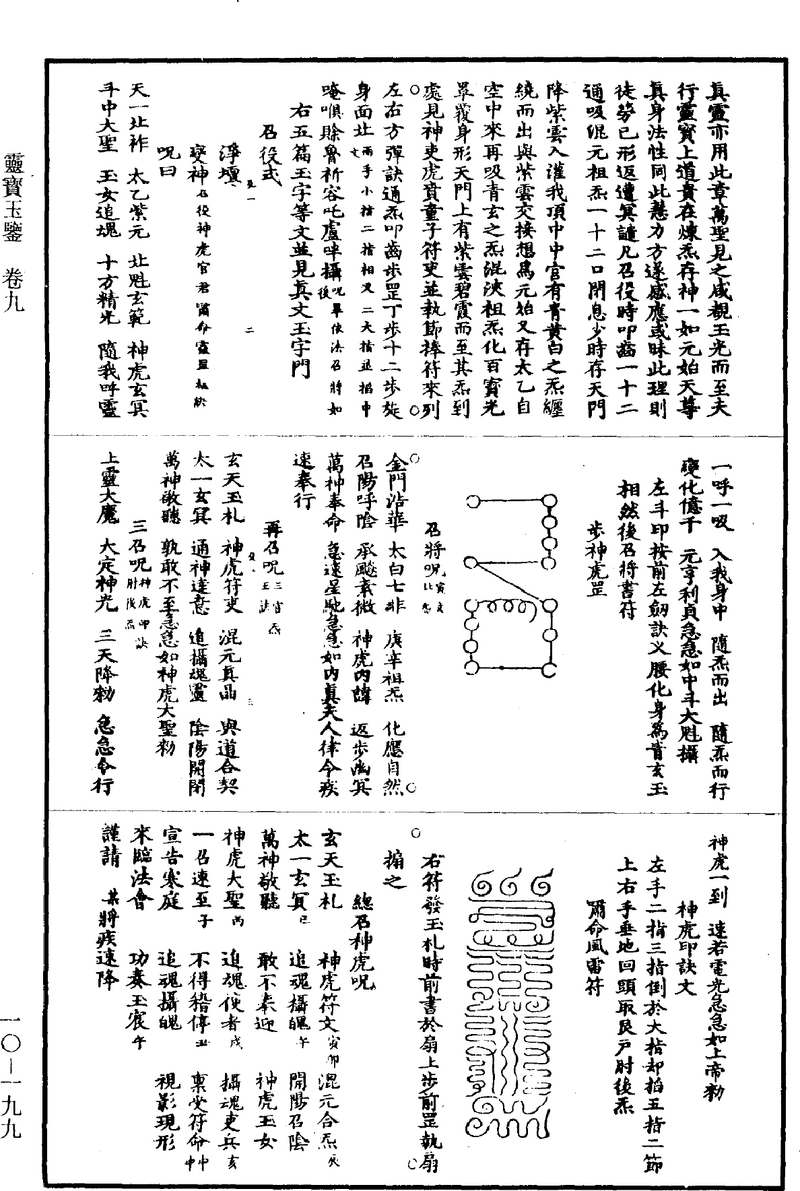 靈寶玉鑒 卷九
眞靈亦用此章萬聖見之咸覩玉光而至夫
行靈寶上道貴在煉炁存神一如元始天尊
眞身法性同此慧力方遂感應或昧此理則
徒勞已形返遭冥譴凡召役時叩齒一十二
通吸混元祖炁一十二口閉息少時存天門
降紫雲入灌我頂中中宮有青黃白之炁纏
繞而出與紫雲交接想爲元始又存太乙自
空中來再吸青玄之炁混浹祖炁化百寶光
罩覆身形天門上有紫雲碧霞而至其炁到
處見神吏虎賁童子符吏並執節捧符來列
左右方彈訣通炁叩齒步罡丁步十二步旋
身面北兩手小指二指相叉二大指並掐中文
唵嗔賒魯祈容吒盧吽攝呪畢使法召將如後
右五篇玉字等文並見眞文玉字門
召役式
淨壇
變神召役神虎官君
呪曰
天一北祚 太乙紫元 北魁玄範 神虎玄冥
斗中大聖 玉女追魂 十方精光 隨我呼靈
一呼一吸 入我身中 隨炁而出 隨炁而行
變化億千 元亨利貞急急如中斗大魁攝
左斗印按前左劒訣叉腰化身爲青玄玉
相然後召將書符
步神虎罡
召將呪
金門浩華 太白七非 庚辛祖炁 化應自然
召陽呼陰 承飈素微 神虎內諱 返步幽冥
萬神奉命 急速星馳急急如內眞夫人律令疾
速奉行
再召呪三官炁玉訣
玄天玉札 神虎符吏 混元眞晶 與道合契
太一玄冥 通神達意 追攝魂靈 陰陽開閉
萬神敬聽 孰敢不至急急如神虎大聖勑
三召呪神虎印訣肘後炁
上靈大魔 大定神光 三天降勑 急急令行
神虎一到 速若電光急急如上帝勑
神虎印訣文
左手二指三指倒於大指却掐五指二節
上右手垂地回頭取艮戶肘後炁
爾命風雷符
右符發玉札時前書於扇上步前罡執扇
搧之
總召神虎呪
玄天玉札 神虎符文寅卯 混元合炁辰
太一玄冥巳 追魂攝魄午 開陽召陰
萬神敬聽 敢不奉迎 神虎玉女
神虎大聖丙 追魂使者戌 攝魂吏兵亥
一召速至子 不得稽停丑 稟受符命中
宣告寒庭 追魂攝魄 視影現形
來臨法會 功奏玉宸午
謹請 某將疾速降
一〇—一九九